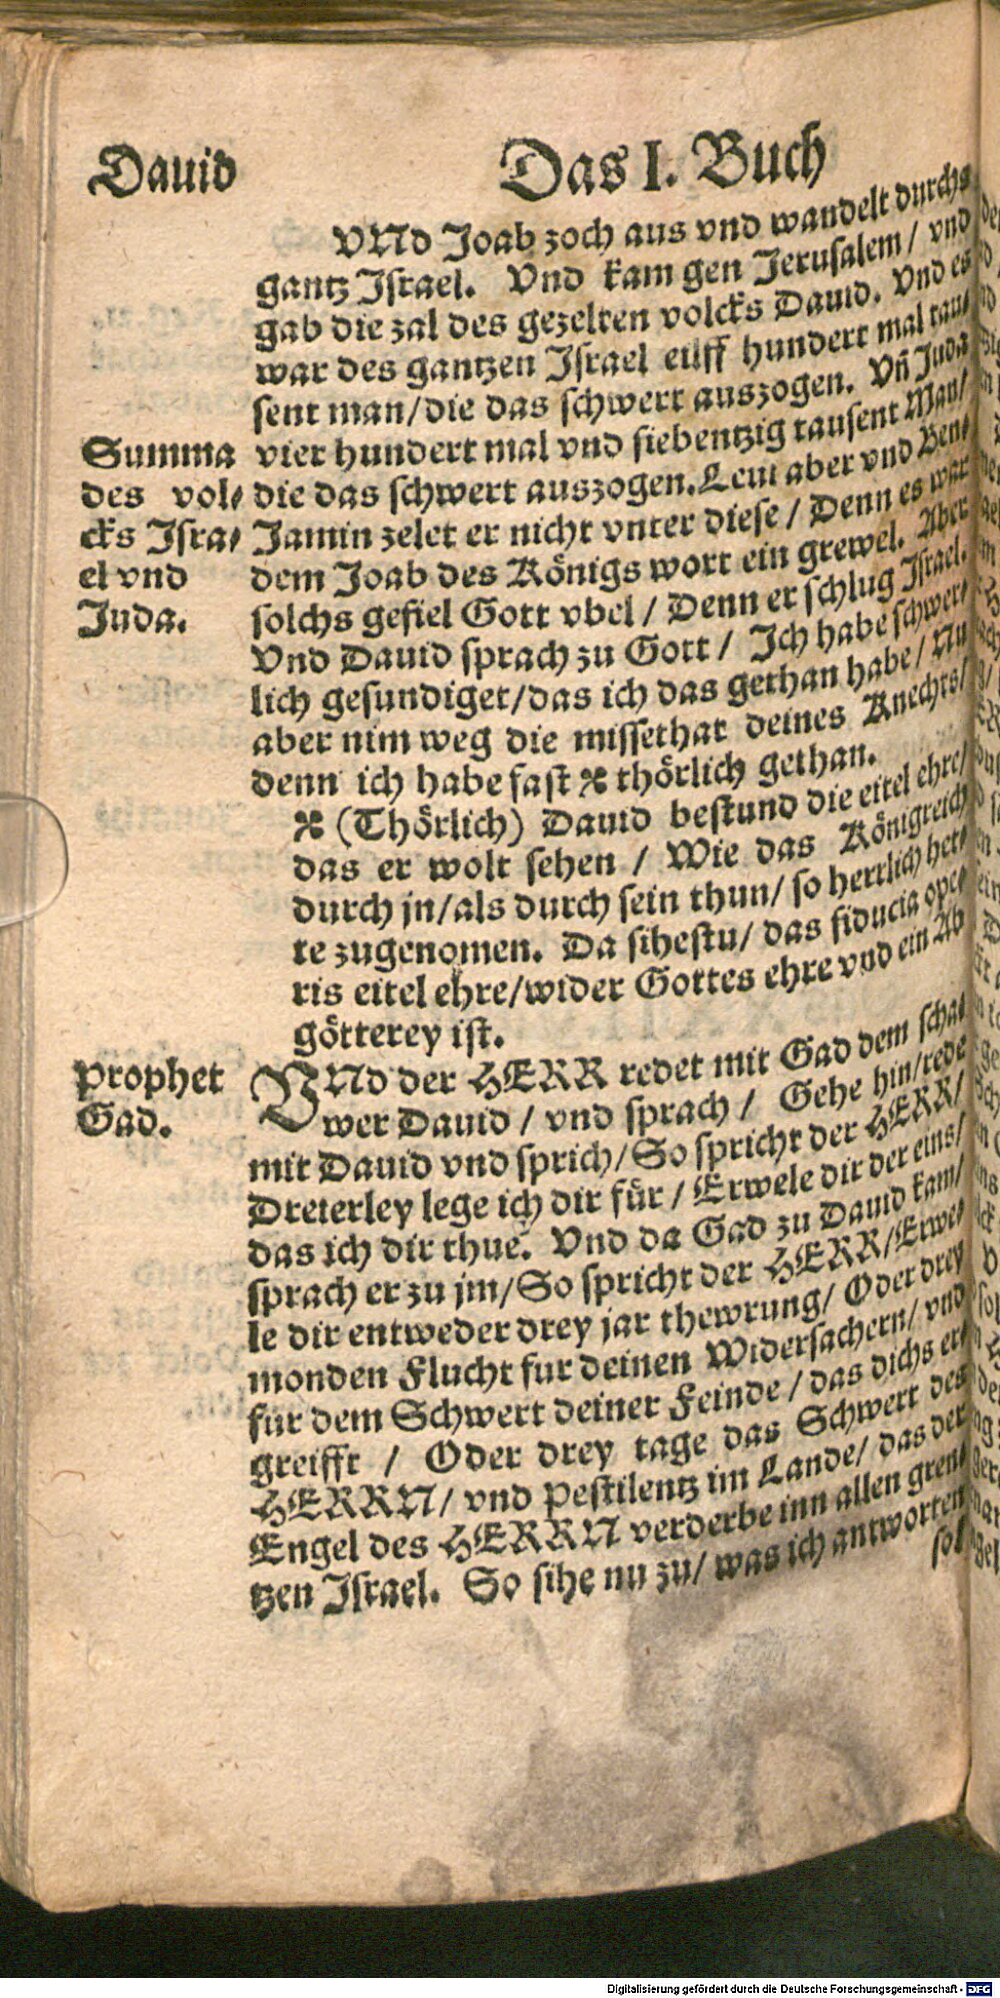 Dauid
Das I. Buch
VNd Joab zoch aus vnd wandelt durchs
gantz Israel. Vnd kam gen Jerusalem / vnd
gab die zal des gezelten volcks Dauid. Vnd es
war des gantzen Israel eilff hundert mal tau⸗
sent man/die das schwert auszogen. Vñ Juda
vier hundert mal vnd siebentzig tausent Man/
die das schwert auszogen. Leui aber vnd Ben⸗
Jamin zelet er nicht vnter diese / Denn es war
dem Joab des Königs wort ein grewel. Aber
solchs gefiel Gott vbel / Denn er schlug Israel.
Vnd Dauid sprach zu Gott / Ich habe schwer⸗
lich gesundiget/das ich das gethan habe/ Nu
aber nim weg die missethat deines Knechts/
denn ich habe fast ※ thörlich gethan.
※ (Thörlich) Dauid bestund die eitel ehre/
das er wolt sehen / Wie das Königreich
durch jn/als durch sein thun/ so herrlich het⸗
te zugenomen. Da sihestu/ das fiducia ope⸗
ris eitel ehre/wider Gottes ehre vnd ein Ab
götterey ist.
Summa
des vol⸗
cks Isra⸗
el vnd
Juda.
Prophet
Gad.
VNd der HERR redet mit Gad dem scha⸗
wer Dauid / vnd sprach / Gehe hin/rede
mit Dauid vnd sprich/So spricht der HERR/
Dreierley lege ich dir für / Erwele dir der eins/
das ich dir thue. Vnd da Gad zu Dauid kam/
sprach er zu jm/So spricht der HERR/Erwe⸗
le dir entweder drey jar thewrung/ Oder drey
monden Flucht fur deinen Widersachern/ vnd
fur dem Schwert deiner Feinde / das dichs er⸗
greifft / Oder drey tage das Schwert des
HERRN/ vnd Pestilentz im Lande/ das der
Engel des HERRN verderbe inn allen gren⸗
tzen Israel. So sihe nu zu/ was ich antworten
sol
Digitalisierung gefördert durch die Deutsche Forschungsgemeinschaft - DFG